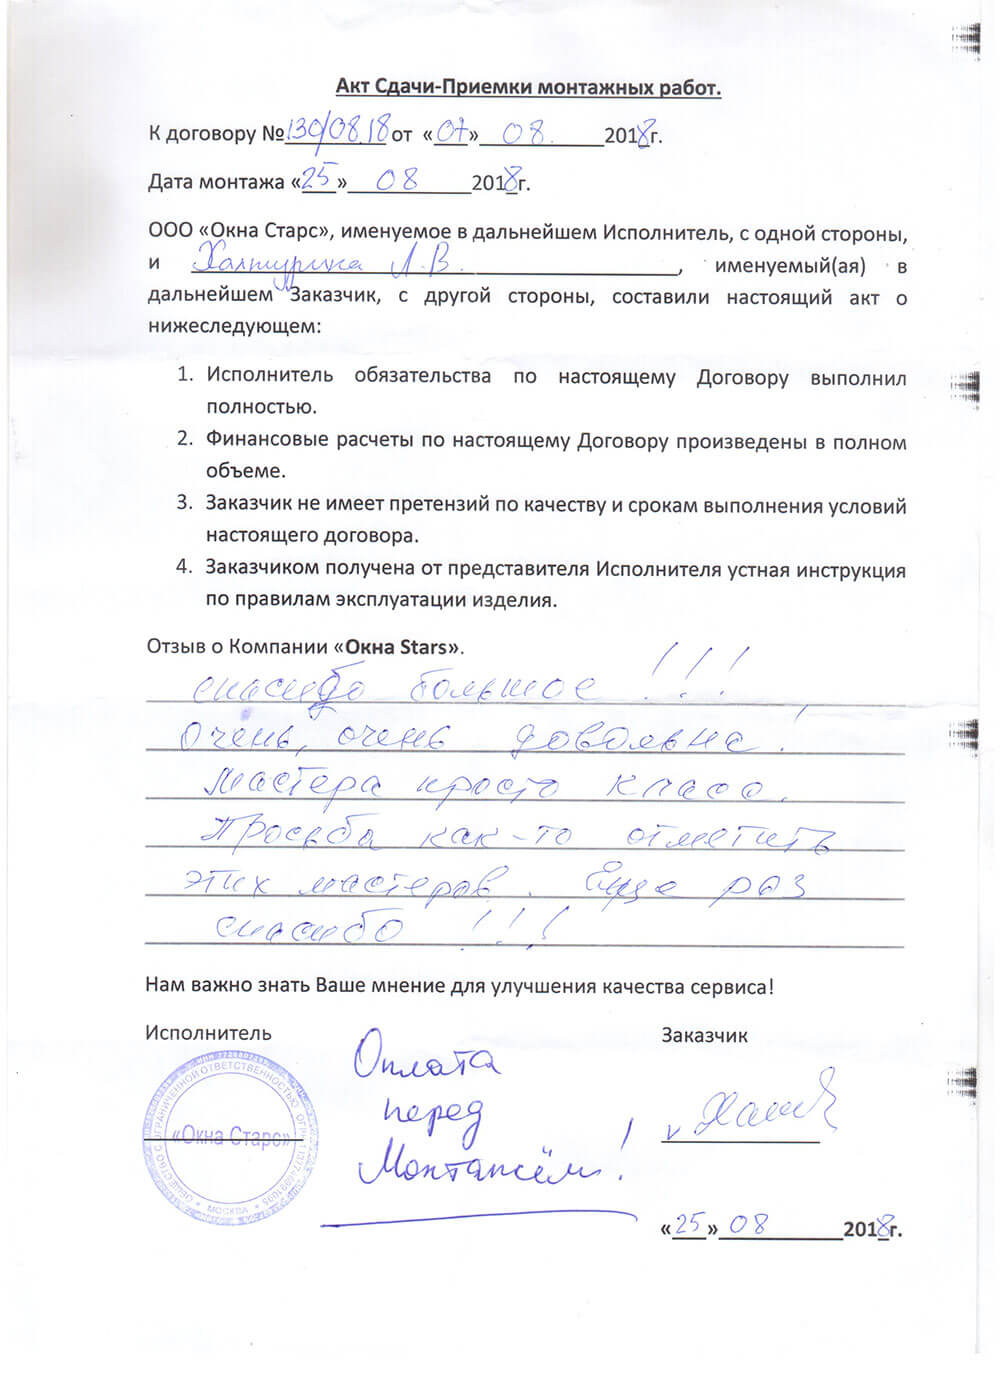 Акт Сдачи-Приемки монтажных работ.
К договору №130/08.18 от «07» 08. 2018г.
Дата монтажа «25» 08 2018г.
ООО «Окна Старс», именуемое в дальнейшем Исполнитель, с одной стороны,
и Халтурина Л.В. , именуемый(ая) в
дальнейшем Заказчик, с другой стороны, составили настоящий акт о
нижеследующем:
1. Исполнитель обязательства по настоящему Договору выполнил
полностью.
2. Финансовые расчеты по настоящему Договору произведены в полном
объеме.
3. Заказчик не имеет претензий по качеству и срокам выполнения условий
настоящего договора.
4. Заказчиком получена от представителя Исполнителя устная инструкция
по правилам эксплуатации изделия.
Отзыв о Компании «Окна Stars».
спасибо большое !!!
Очень, очень довольна!
Мастера просто класс.
Просьба как-то отметить
этих мастеров. Еще раз
спасибо !!!
Нам важно знать Ваше мнение для улучшения качества сервиса!
Исполнитель
Заказчик
Оплата
перед
Монтажём!
ОБЩЕСТВО С ОГРАНИЧЕННОЙ ОТВЕТСТВЕННОСТЬЮ
«Окна Старс»
МОСКВА
«25» 08 2018г.